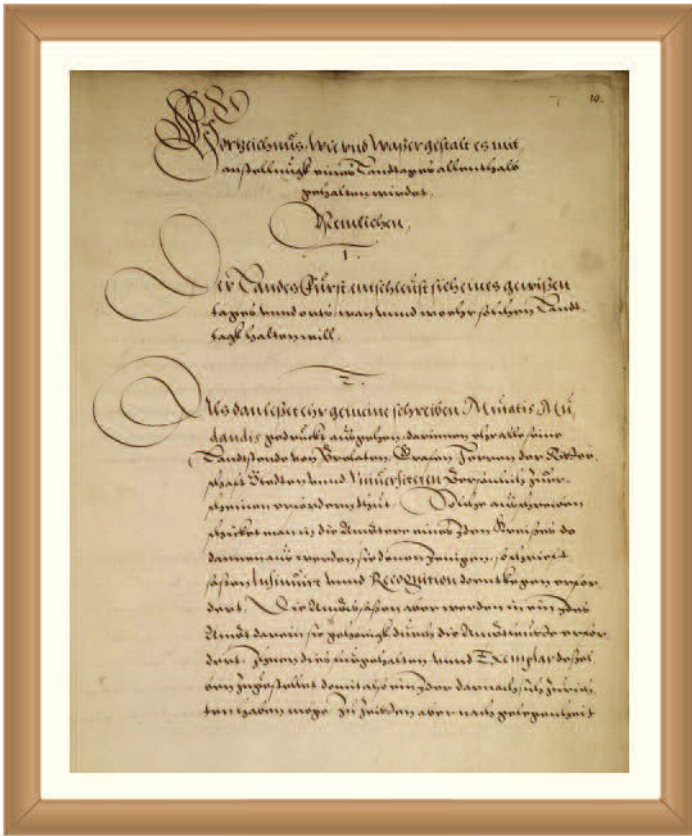 10.
Vorzeichnus, Wie vnd Waßer gestalt es mit
anstellungk eines Landtages allenthalb
gehalten wirdet,
Nemlichen,
1.
Der Landes Fürst entschleust sich eines gewißen
tages vnnd orts, wan vnnd woehr solchen Landt,
tagk halten will,
2.
Als dan leßet ehr gemeine schreiben, Mutatis Mu,
dandis gedruckt außgehen, darinnen ehr alle seine
Landtstende von Prelaten, Grafen, Herren, der Ritter,
schaft, Stedten vnnd Vniuersiteten Persönlich zuer,
scheinen erfordern thut, Solche außschreiben
schicket man in die Ambtere eines jden Kreißes, do
dannen aus werden sie denen jenigen, so
saßen Insinuirt vnnd Recognition dorntkegen erfor,
dert, Die Ambtsaßen aber werden in ein jdes
Ambt darein sie gehorigk durch die Ambtleute erfor,
dert, Ihnen dies furgehalten vnnd Exemplar deßel,
ben zugestellet, domit also ein jder darnach sich zurich,
ten haben moge, Zu zeitten aber nach gelegenheit